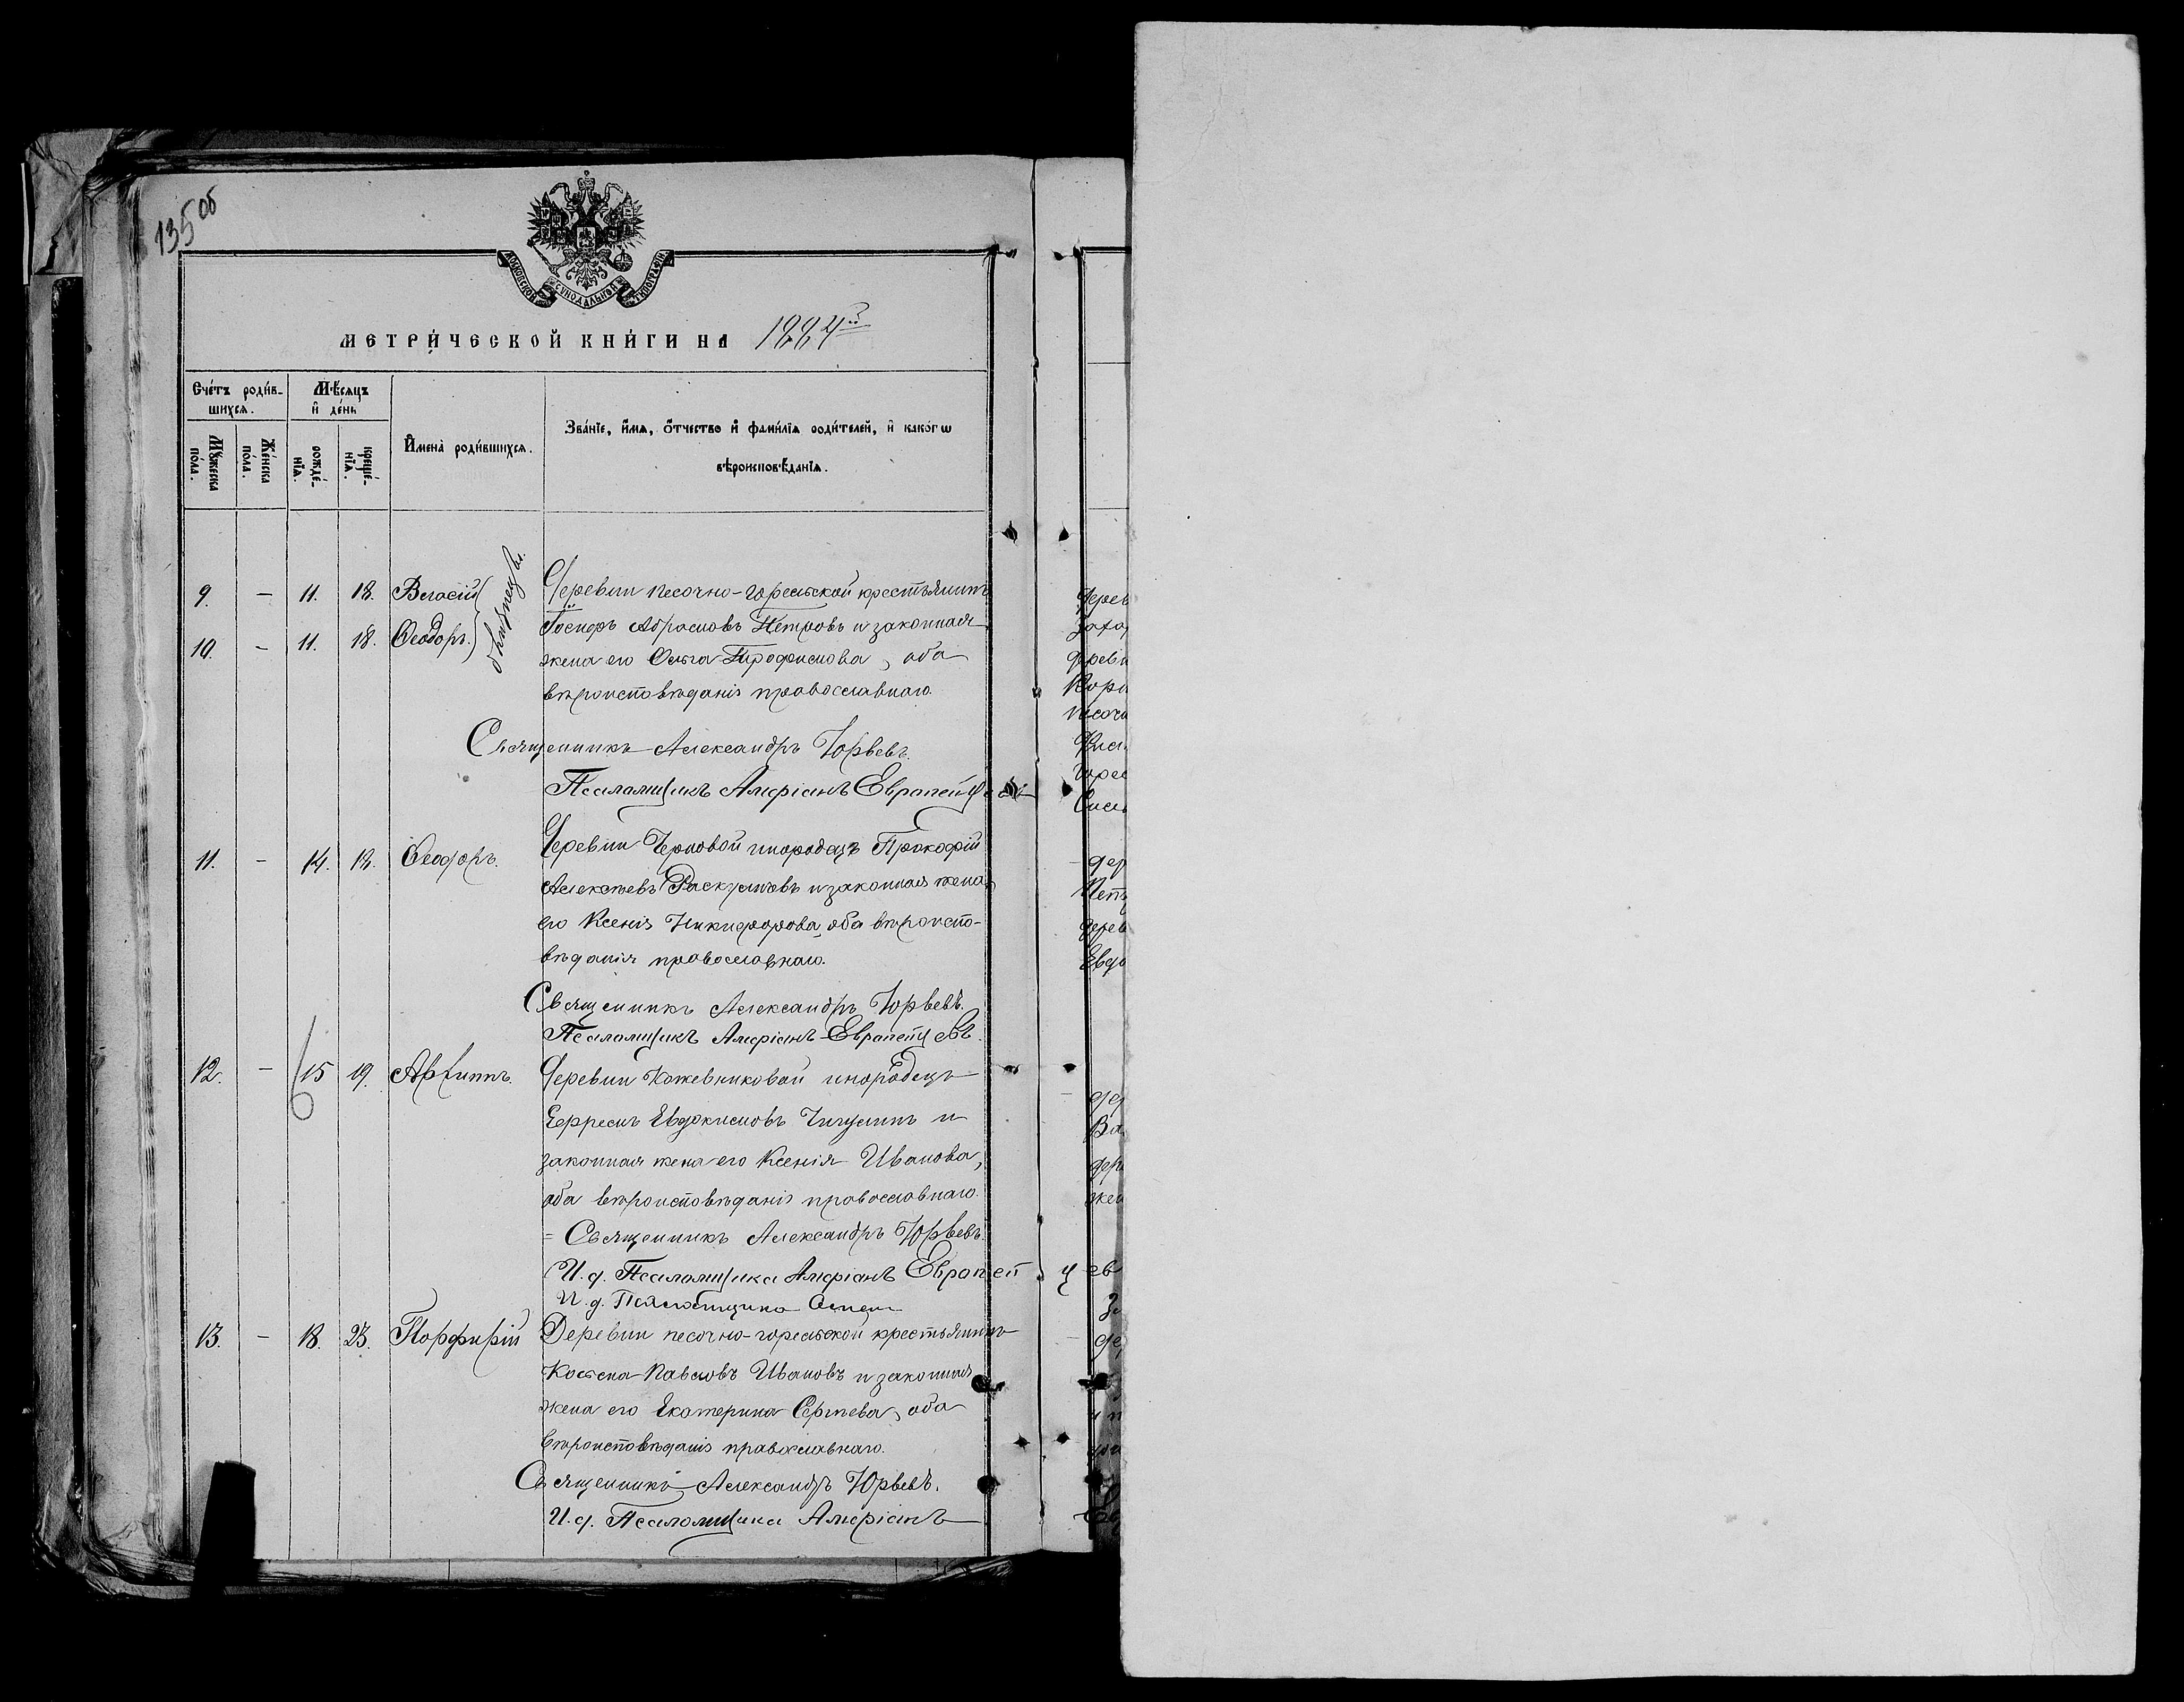 135 об
МОСКОВСКОЙ СѴНОДАЛЬНОЙ ТИПОГРАФІИ
МЕТРИ́ЧЕСКОЙ КНИ́ГИ НА 1884й
Сче́тъ роди́в-
шихся.
Мѣ́сяцъ
и҆ де́нь
Мꙋ́жеска
по́ла.
Же́нска
по́ла.
рожде́-
нїѧ.
креще́-
нїѧ.
И҆мена̀ роди́вшихся.
Зва́нїе, и҆́мѧ, ѻ҆́тчество и҆ фами́лїѧ роди́телей, и҆ како́гѡ
вѣроисповѣ́данїѧ.
9. — 11. 18. Власій близнецы. Деревни песочно-горельской крестьянинъ
10. — 11. 18. Ѳеодоръ. Абрамовъ Петровъ и законная
жена его Ольга Трофимова, оба
вѣроисповѣданія православнаго.
Священникъ Александръ Юрьевъ.
Псаломщикъ Амфіанъ Европейцевъ
11. — 14. 18. Ѳеодоръ. Деревни Черновой инородецъ Прокофій
Алексѣевъ и законная жена
его Ксенія Никифорова, оба вѣроиспо-
вѣданія православнаго.
Священникъ Александръ Юрьевъ.
Псаломщикъ Амфіанъ Европейцевъ.
12. — 15 19. Архиппъ. Деревни Кожевниковой инородецъ
Ефремъ Евдокимовъ Чигулинъ и
законная жена его Ксенія Иванова,
оба вѣроисповѣданія православнаго.
= Священникъ Александръ Юрьевъ.
И. д. Псаломщика Амфіанъ Европейцевъ
И. д. Псаломщика
13. — 18. 23. Порфирій Деревни песочно-горельской крестьянинъ
Косьма Павловъ Ивановъ и законная
жена его Екатерина Сергѣева, оба
вѣроисповѣданія православнаго.
Священникъ Александръ Юрьевъ.
И. д. Псаломщика Амфіанъ